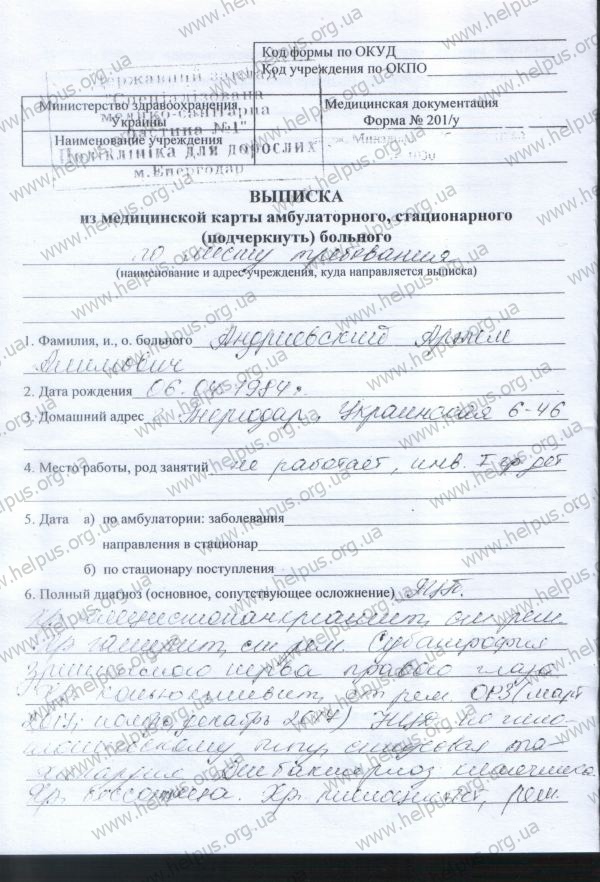 www.helpus.org.ua
Код формы по ОКУД
Код учреждения по ОКПО
Державний заклад
"Спеціалізована
медико-санітарна
частина №1"
Поліклініка для дорослих
м.Енергодар
Министерство здравоохранения
Украины
Наименование учреждения
Медицинская документация
Форма № 201/у
ВЫПИСКА
из медицинской карты амбулаторного, стационарного
(подчеркнуть) больного
по месту требования
(наименование и адрес учреждения, куда направляется выписка)
1. Фамилия, и., о. больного Андриевский Артем
2. Дата рождения 06.04.1984г
3. Домашний адрес г. Энергодар, Украинская 6-46
4. Место работы, род занятий не работает, инв. I гр дет
5. Дата а) по амбулатории: заболевания
направления в стационар
б) по стационару поступления
6. Полный диагноз (основное, сопутствующее осложнение)
Хр. ст рем
Хр. гастрит, ст рем. Субатрофия
зрительного нерва правого глаза
Хр. коньюнктивит, ст рем ОРЗ (март
2017, декабрь 2017) НЦД по гипо-
типу, синусовая та-
хикардия. Дисбактериоз кишечника.
Хр. Хр. рем.